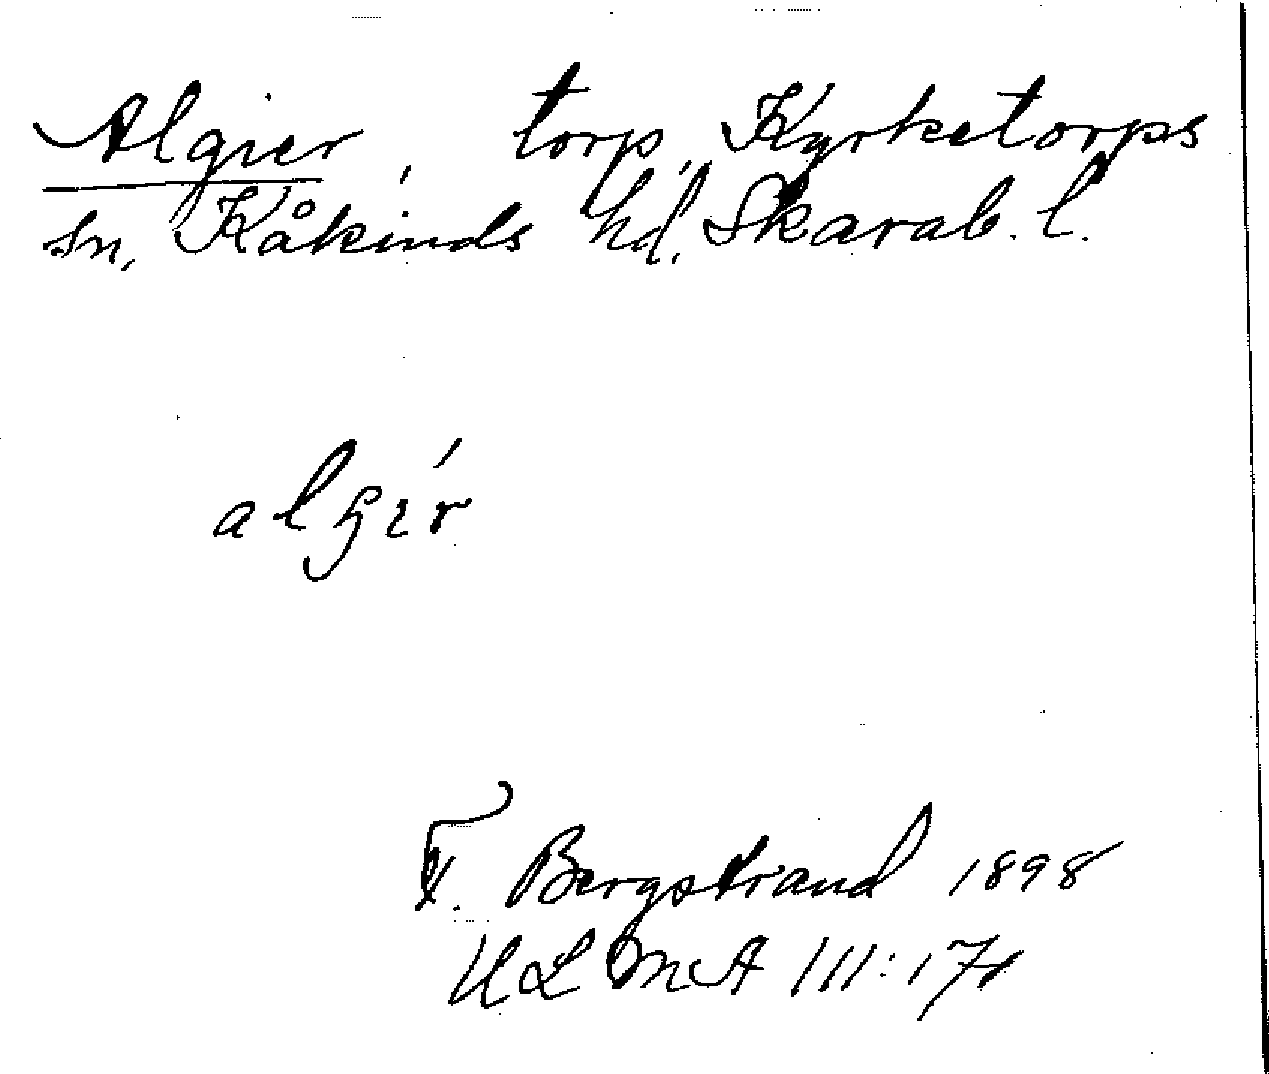 Algier, torp, Kyrketorps
sn, Kåkinds hd. Skarab. l.
algír
F. Bergstrand 1898
ULMA 111:17